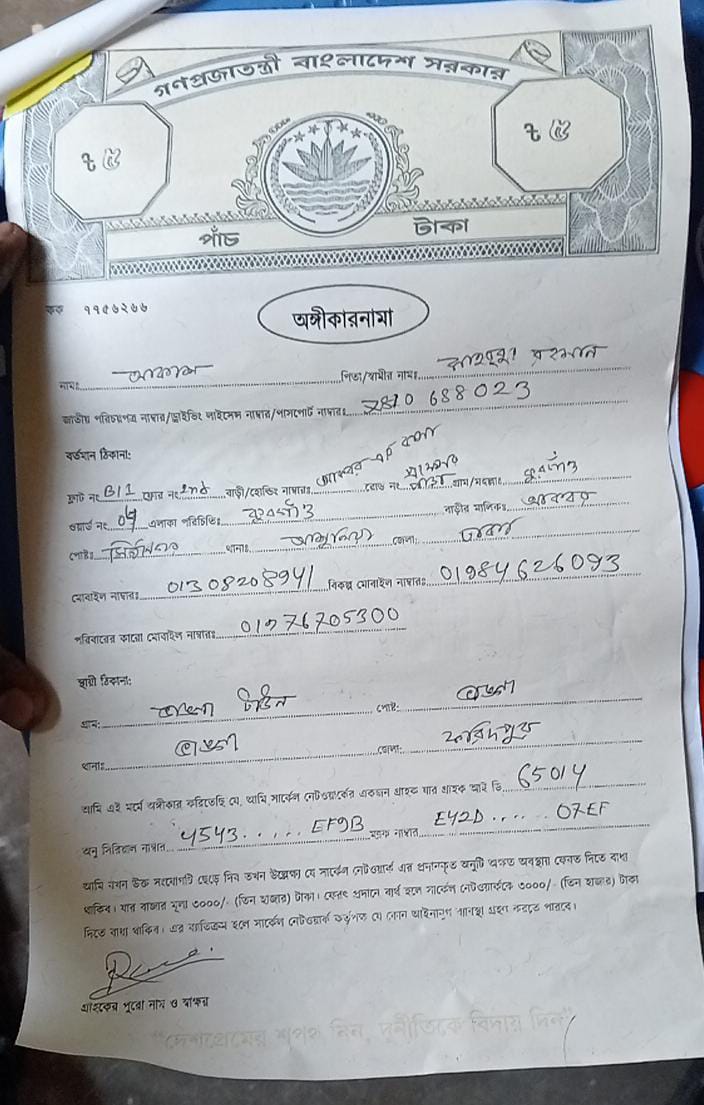 গণপ্রজাতন্ত্রী বাংলাদেশ সরকার
৳ ৫ ৳ ৫
পাঁচ টাকা
কক ৭৭৫৬২৬৬
অঙ্গীকারনামা
নামঃ আকাশ পিতা/স্বামীর নামঃ রহমান
জাতীয় পরিচয়পত্র নাম্বার/ড্রাইভিং লাইসেন্স নাম্বার/পাসপোর্ট নাম্বারঃ 2810 688023
বর্তমান ঠিকানা:
ফ্ল্যাট নং B/1 ফ্লোর নং 2nd বাড়ী/হোল্ডিং নাম্বারঃ রোড নং গ্রাম/মহল্লাঃ
ওয়ার্ড নং 04 এলাকা পরিচিতিঃ বাড়ীর মালিকঃ আকবর
পোষ্টঃ থানাঃ আশুলিয়া জেলাঃ ঢাকা
মোবাইল নাম্বারঃ 01308208941 বিকল্প মোবাইল নাম্বারঃ 01984626093
পরিবারের কারো মোবাইল নাম্বারঃ 01776705300
স্থায়ী ঠিকানা:
গ্রাম: পোষ্ট:
থানাঃ জেলা: ফরিদপুর
আমি এই মর্মে অঙ্গীকার করিতেছি যে, আমি সার্কেল নেটওয়ার্কের একজন গ্রাহক যার গ্রাহক আই ডি 65014
অনু সিরিয়াল নাম্বার 4543..... EF9B ম্যাক নাম্বার E42D..... 07EF
আমি যখন উক্ত সংযোগটি ছেড়ে দিব তখন উল্লেখ্য যে সার্কেল নেটওয়ার্ক এর প্রদানকৃত অনুটি অক্ষত অবস্থায় ফেরত দিতে বাধ্য
থাকিব। যার বাজার মূল্য ৩০০০/- (তিন হাজার) টাকা। ফেরৎ প্রদানে ব্যর্থ হলে সার্কেল নেটওয়ার্ককে ৩০০০/- (তিন হাজার) টাকা
দিতে বাধ্য থাকিব। এর ব্যতিক্রম হলে সার্কেল নেটওয়ার্ক কর্তৃপক্ষ যে কোন আইনানুগ ব্যবস্থা গ্রহণ করতে পারবে।
গ্রাহকের পুরো নাম ও স্বাক্ষর
"দেশপ্রেমের শপথ নিন, দুর্নীতিকে বিদায় দিন"